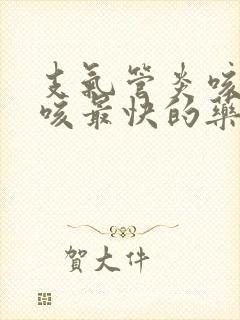 支氣管炎咳
咳最快的藥
賀大件